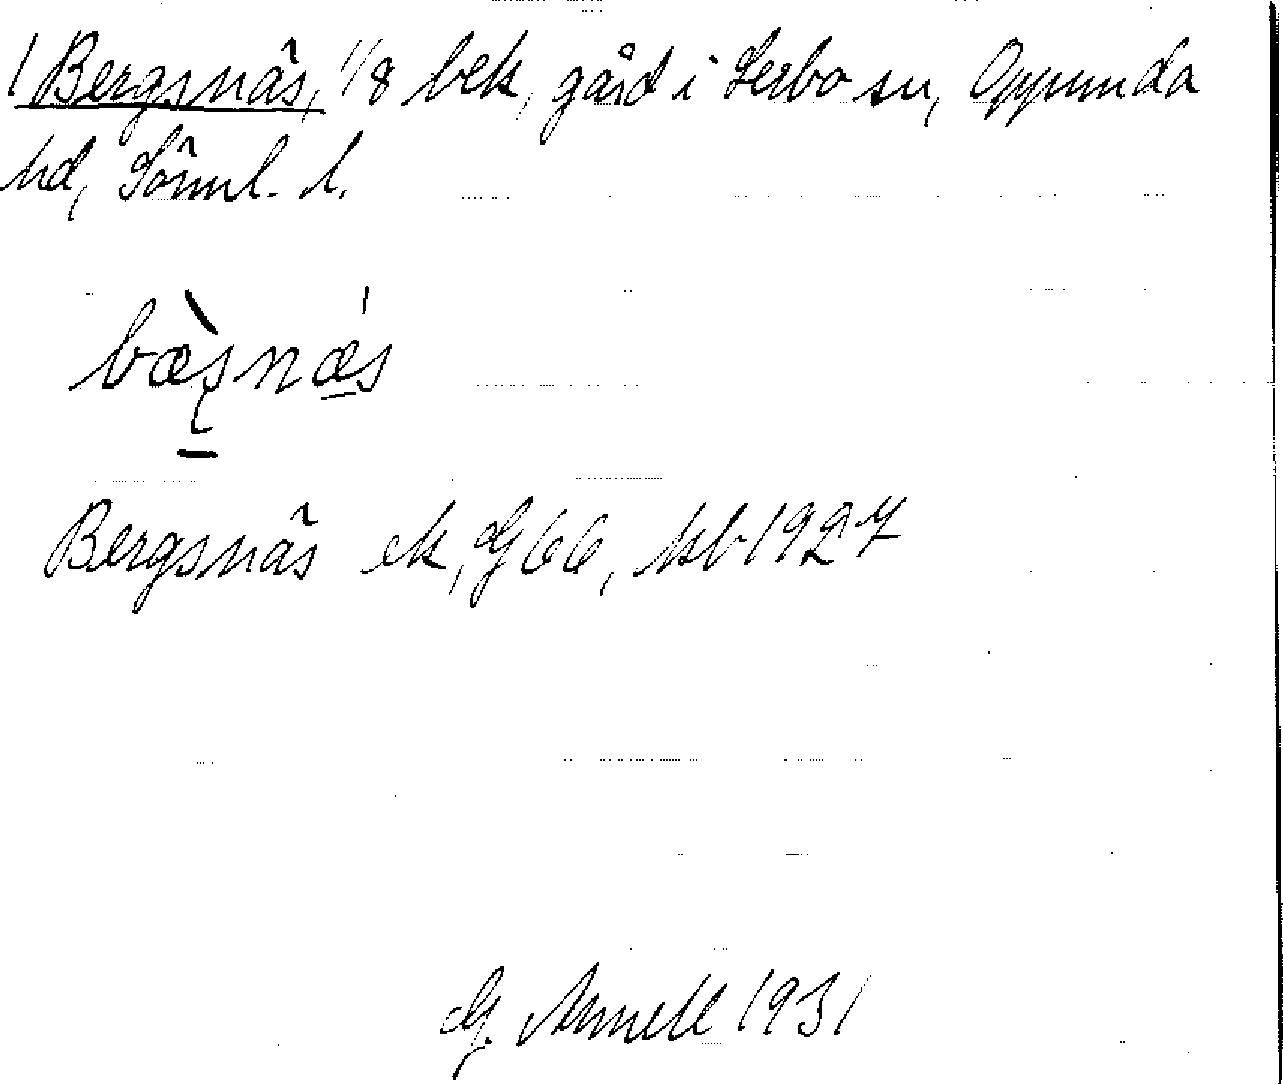 1 Bergsnäs, 1/8 bek, gård i Lerbo sn, Oppunda
hd, Söml. l.
bæ̀snǽs
Bergsnäs ek, G 66, kb 1927
G. Annell 1931